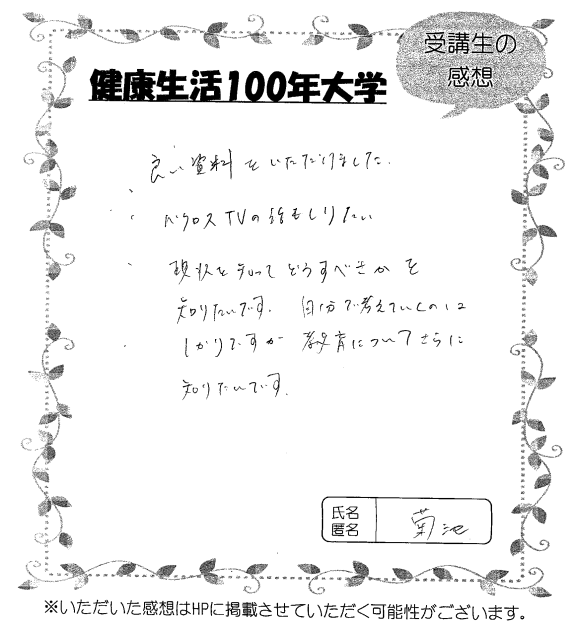 受講生の
感想
健康生活100年大学
良い資料をいただけました.
ベクロスTVの話もしりたい
現状を知ってどうすべきかを
知りたいです. 自分で考えていくのは
しかりですが 教育についてさらに
知りたいです.
氏名
匿名
菊池
※いただいた感想はHPに掲載させていただく可能性がございます。